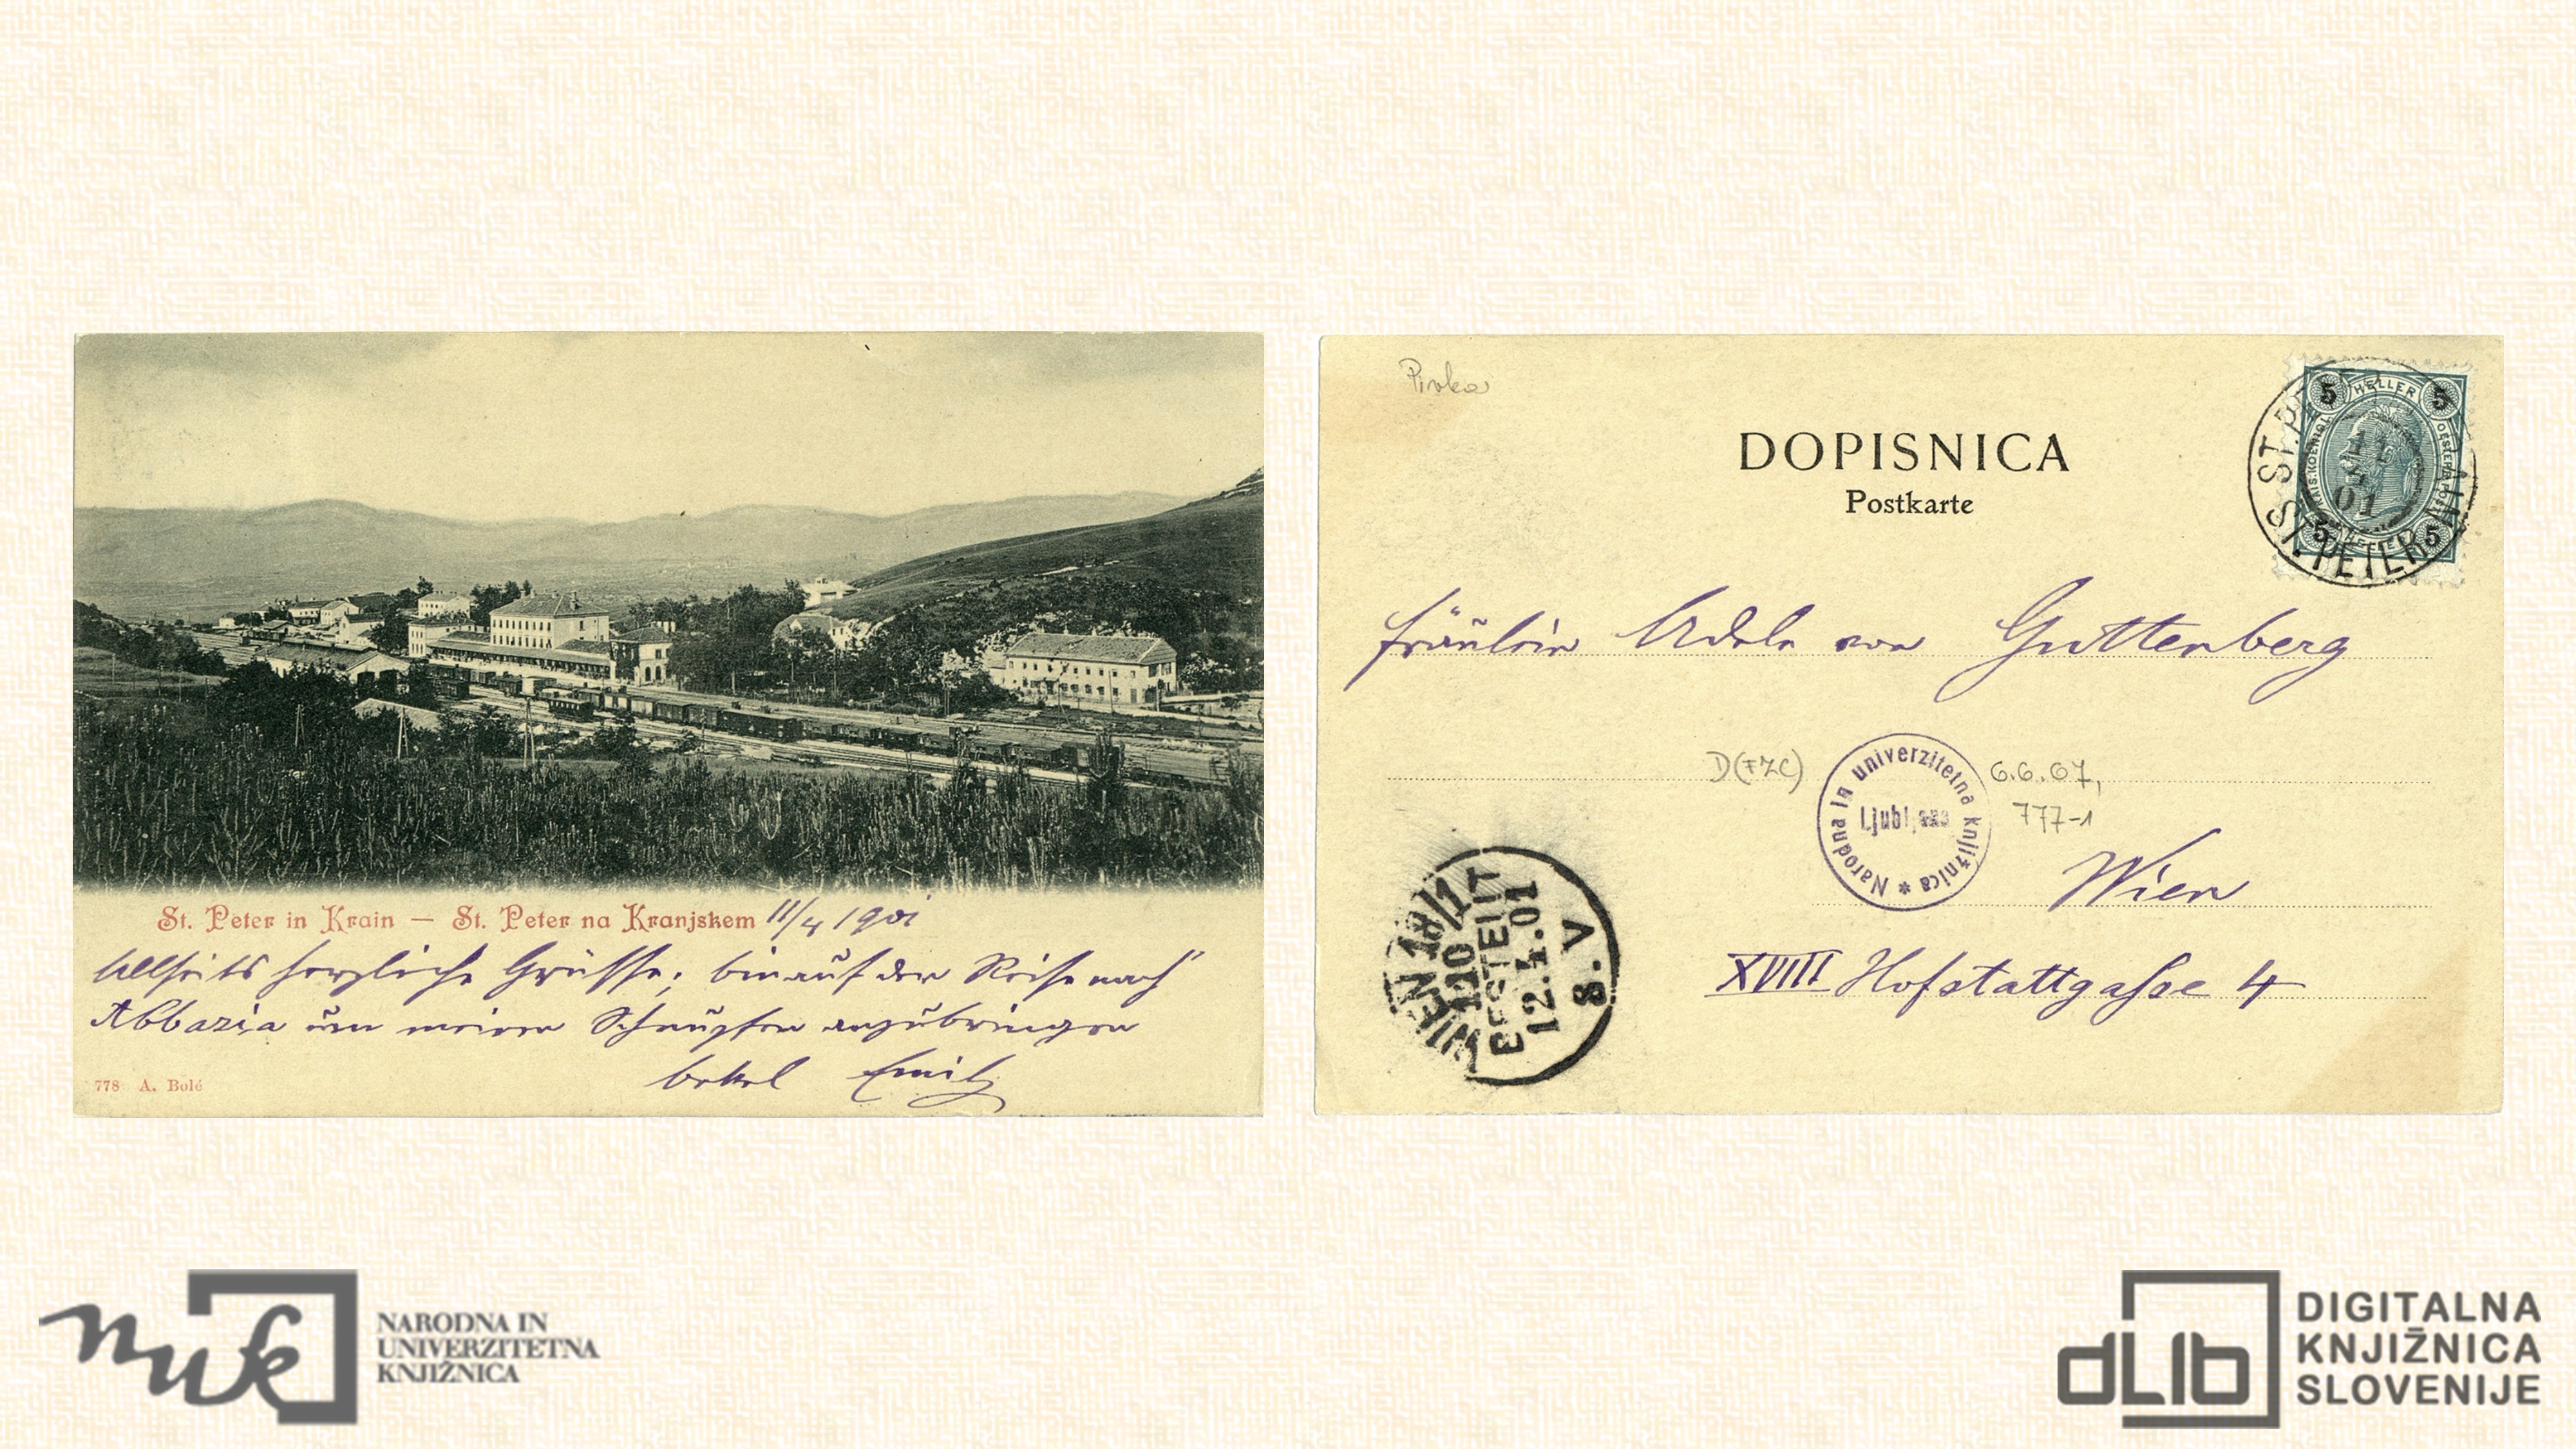 St. Peter in Krain — St. Peter na Kranjskem 11/4 1901
Allseits herzliche Grüsse; bin auf der Reise nach
Abbazia um meinen Schnupfen anzubringen
Emil
778 A. Bolé
Pivka
DOPISNICA
Postkarte
5 HELLER 5
ST. P
11
01
ST. PETER
Fräulein Adele von Guttenberg
D(FZC)
Narodna in univerzitetna knjižnica *
Ljubljana
6.6.07,
777-1
Wien
XVIII Hofstattgasse 4
WIEN 18/1
110
BESTELLT
12.4.01
8.V
nuk
NARODNA IN
UNIVERZITETNA
KNJIŽNICA
dLib
DIGITALNA
KNJIŽNICA
SLOVENIJE